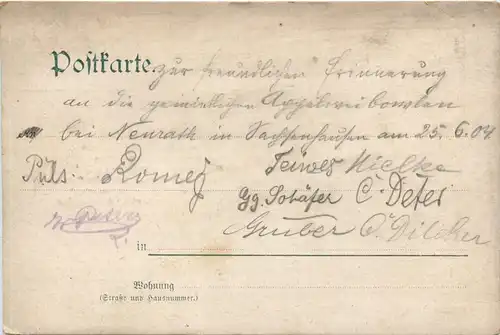 Postkarte. zur freundlichen Erinnerung
an die gemütlichen Appelweibowlen
bei Neurath in Sachsenhausen am 25.6.04
Puls. Romeg Teiwes Mielke
Gg. Schäfer C. Deter
Gruber C. Dilcher
in
Wohnung
(Straße und Hausnummer.)